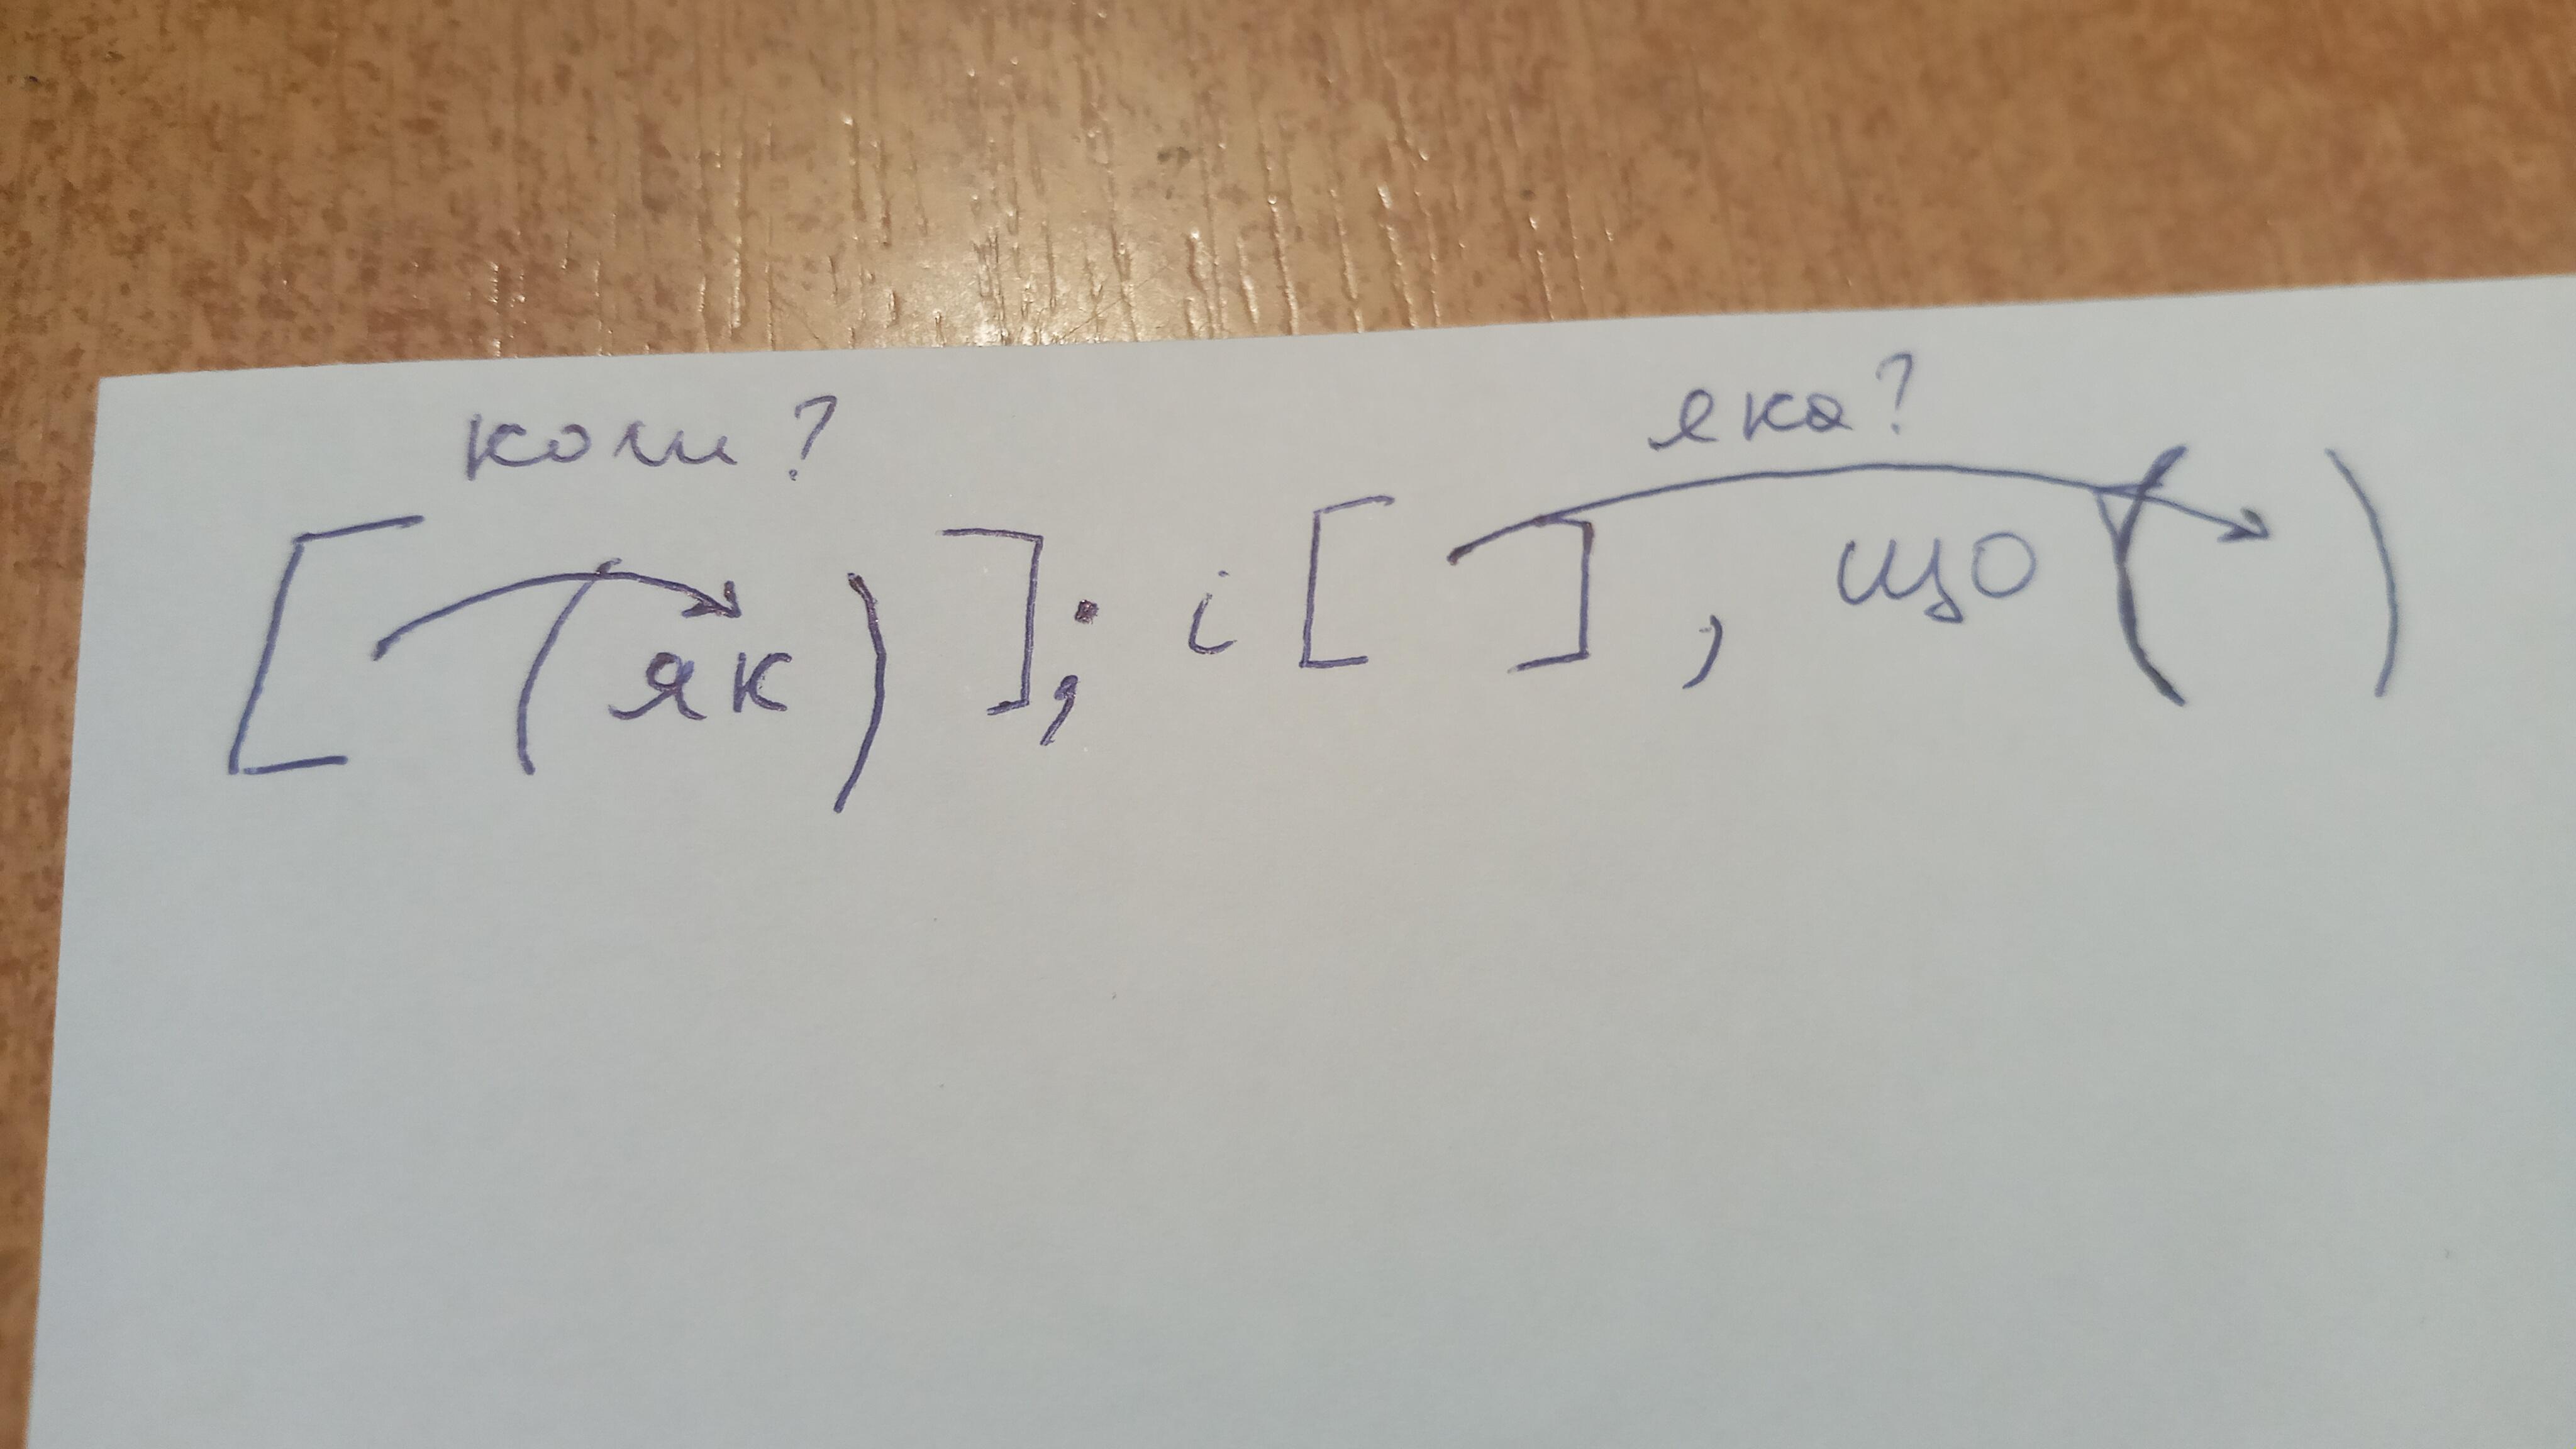 коли? яка?
[ (як) ]; і [ ], що ( )